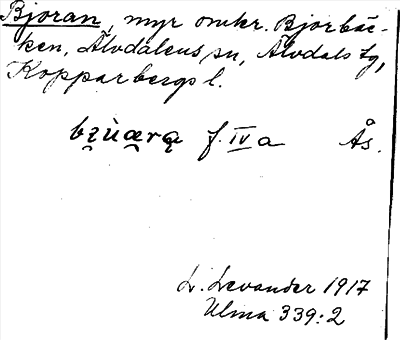 Bjoran, myr omkr. Bjorbäc-
ken, Älvdalens sn, Älvdals tg,
Kopparbergs l.
bz̯ùæra̯ f. IV a Ås.
L. Levander 1917
Ulma 339:2